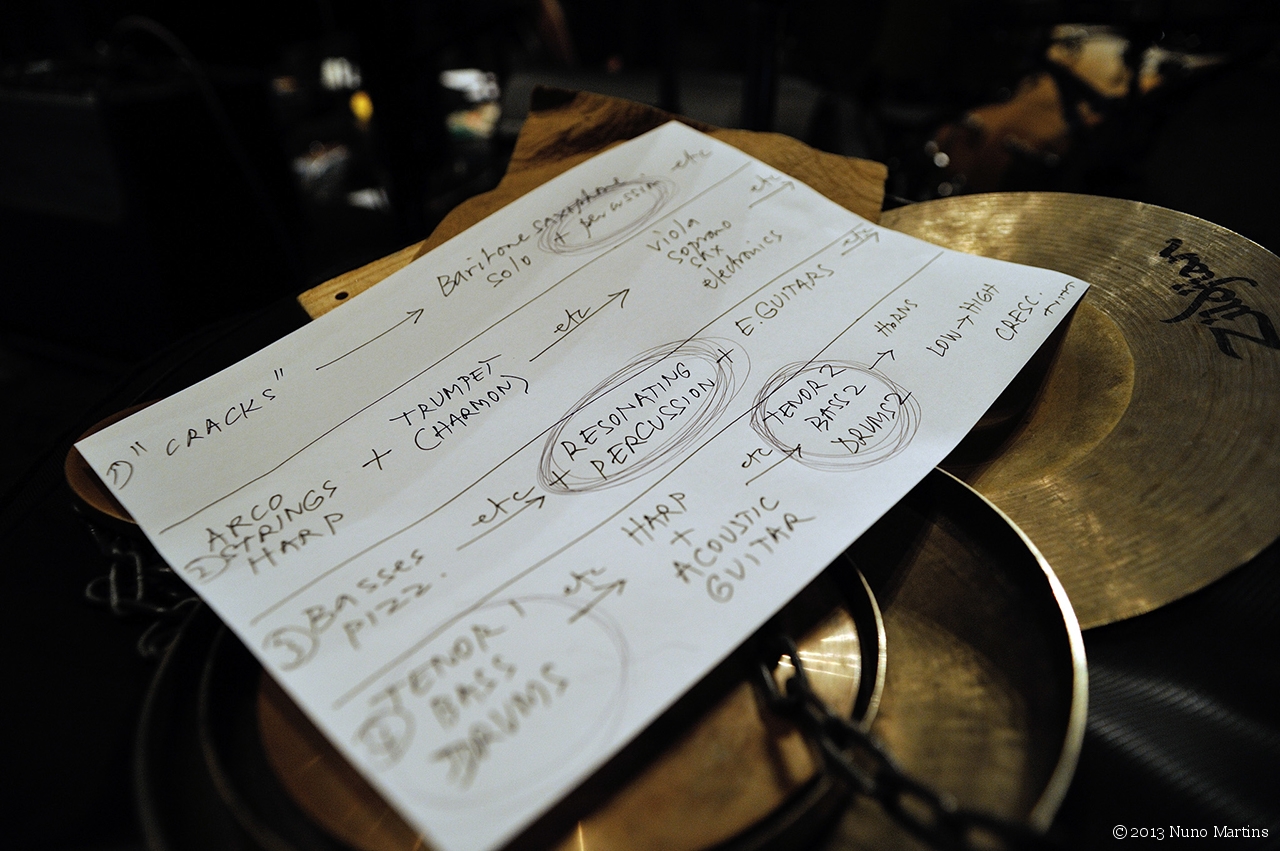 1) "CRACKS" → Baritone saxophone
solo
+ percussion
etc
2) ARCO
STRINGS
HARP
+ TRUMPET
(HARMON)
etc →
viola
soprano
sax
electronics
etc →
3) BASSES
PIZZ.
etc →
+ RESONATING
PERCUSSION
+ E.GUITARS
etc →
4) TENOR 1
BASS
DRUMS
etc →
HARP
+
ACOUSTIC
GUITAR
etc →
TENOR 2
BASS 2
DRUMS 2
→ HORNS
LOW → HIGH
CRESC.
Zildjian
© 2013 Nuno Martins